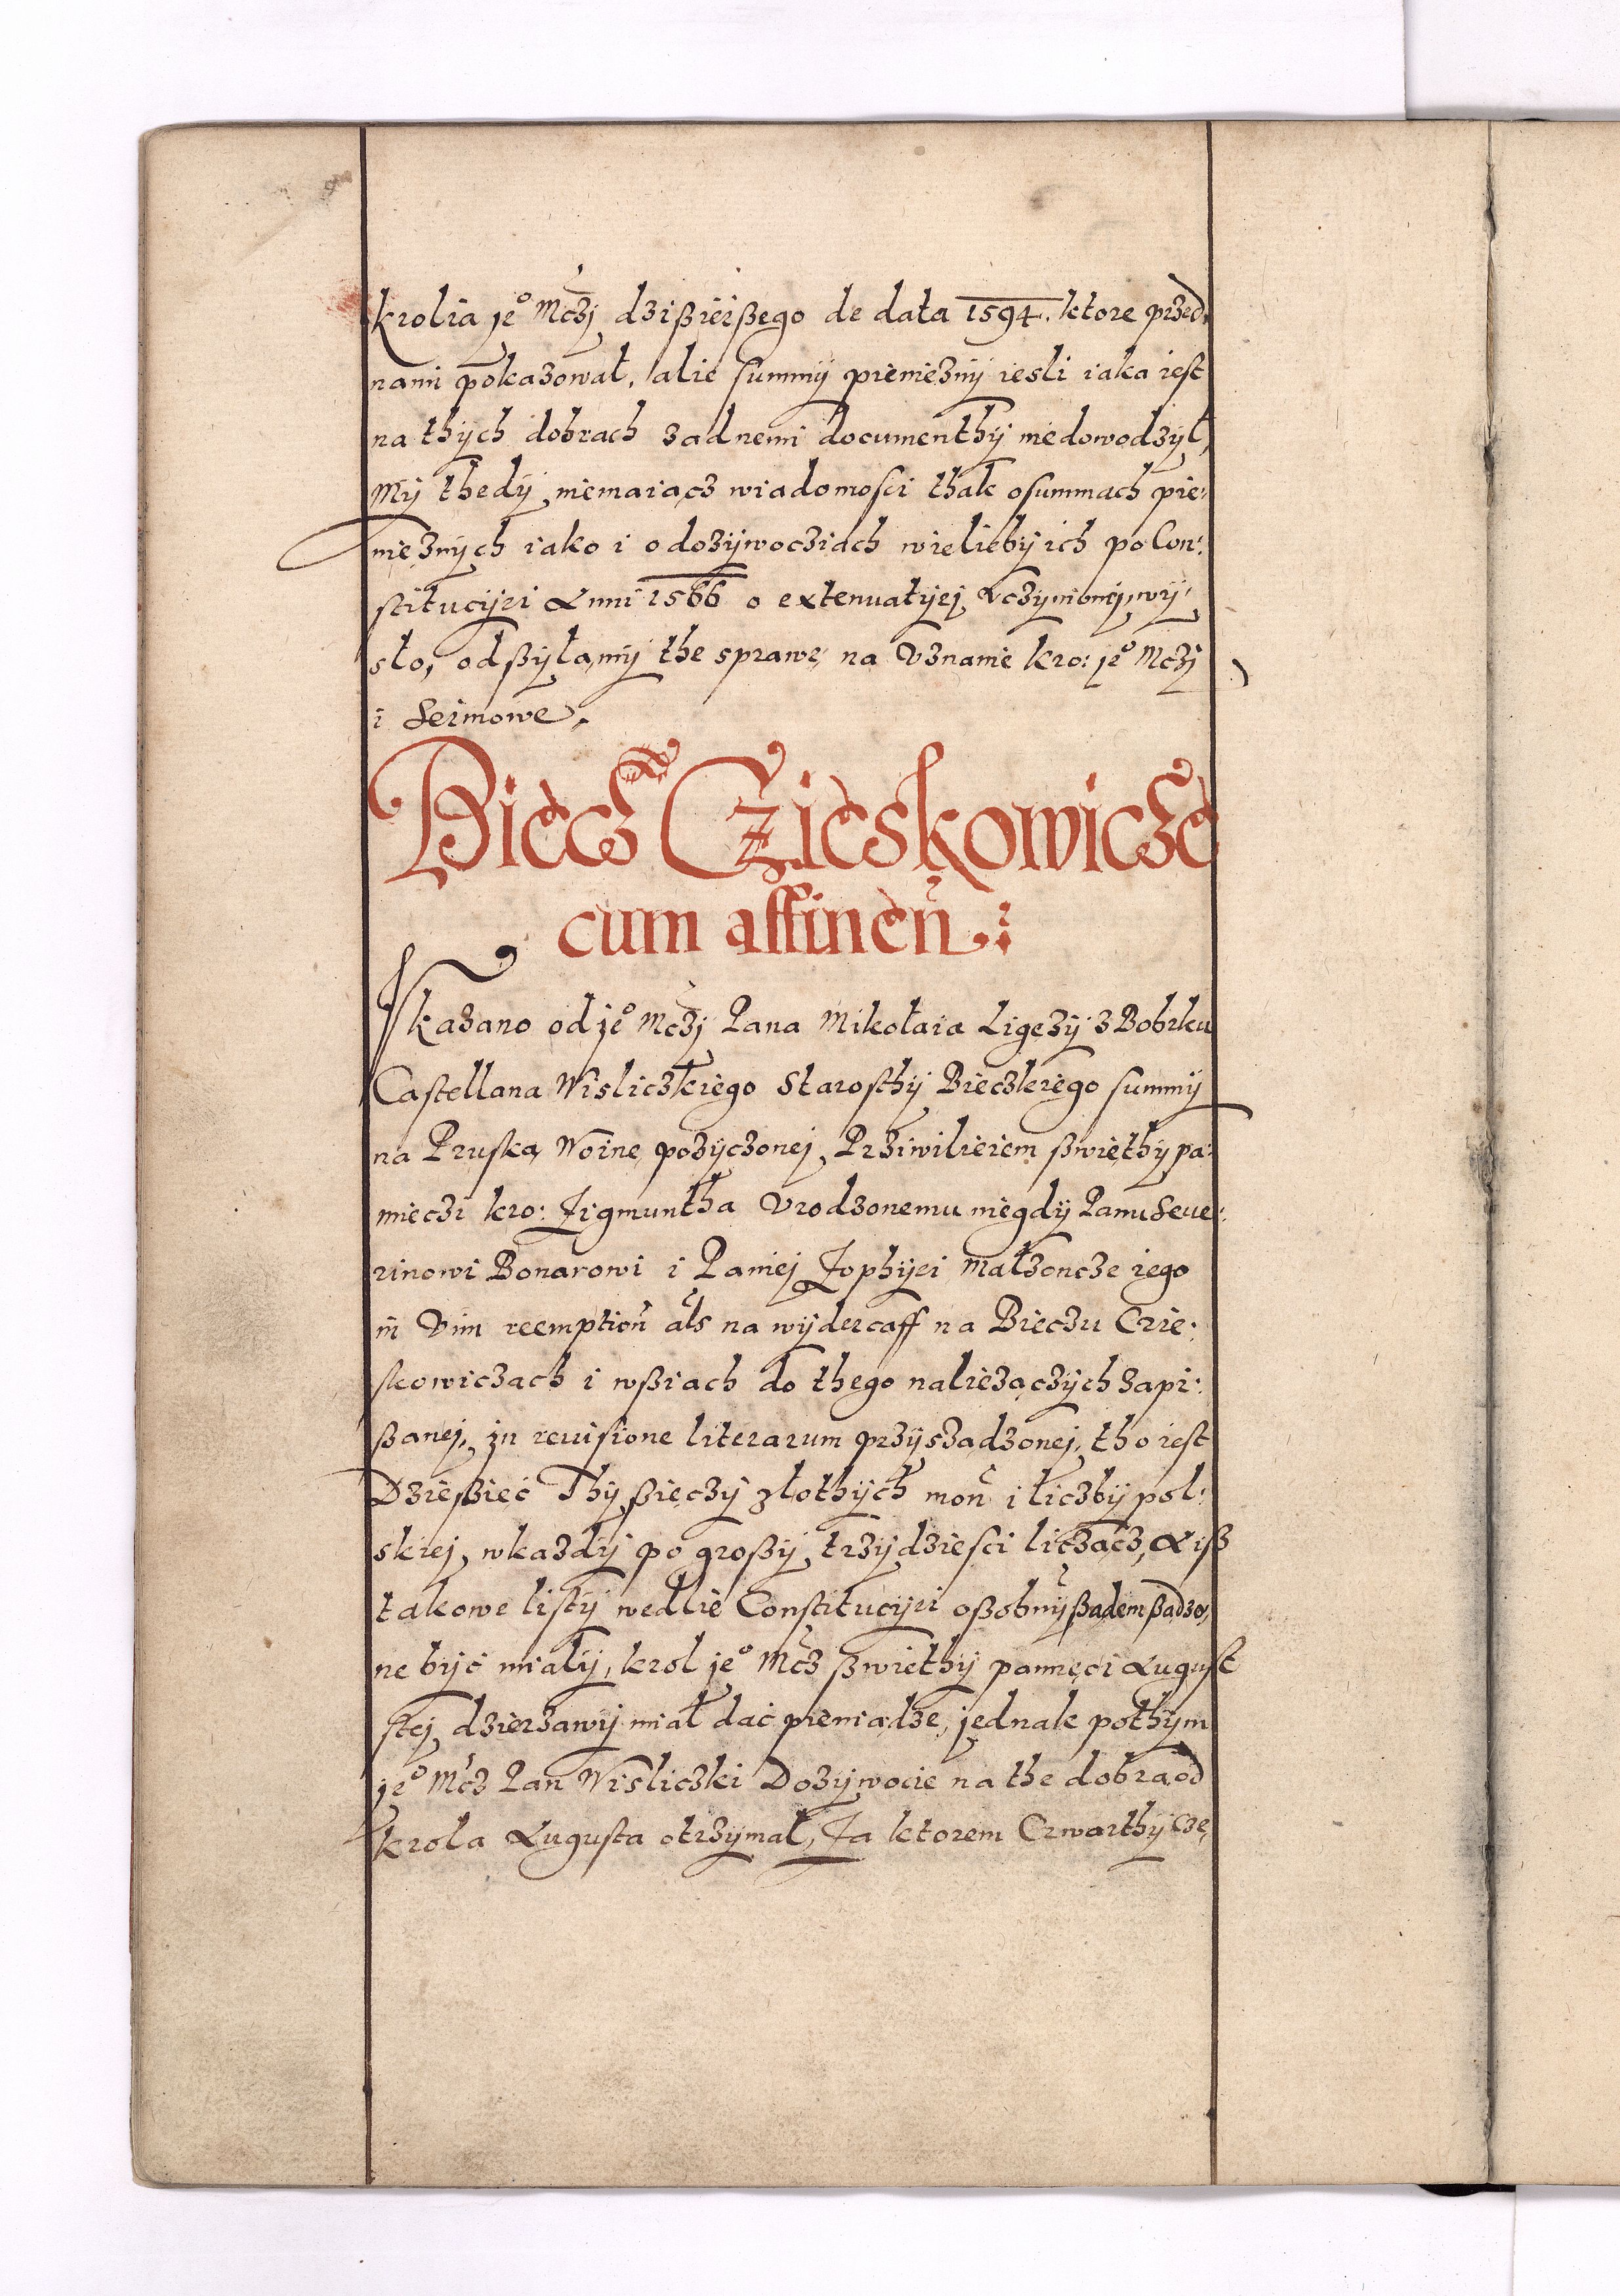 krolia je° Mczj dzißieißego de data 1594. ktore przed
nami pokazował, alie summÿ pienięznÿ iesli iaka iest
na thÿch dobrach zadnemi documenthÿ niedowodzÿł,
Mÿ thedÿ niemaiącz wiadomosci thak osummach pie:
nięznÿch iako i odozÿwocziach wieliebÿ ich po Con:
stitucÿei Anni 1566 o extenuatÿej vczÿnionej wÿ:
sło, odßÿłamÿ the sprawę na Vznanie kro: je° Mczj
i Seimowe.
Biecz Czieskowicze
cum affinen̄.:
Skazano od je° Mczj Pana Mikołaia Ligęzÿ z Bobrku
Castellana Wisliczkiego Starosthÿ Bieczkiego summÿ
na Pruską Woinę pozÿczonej, Prziwilieiem ßwięthÿ pa:
mięczi kro: Zigmuntha Vrodzonemu niegdÿ Panu Seue:
rinowi Bonarowi i Paniej Zophÿei Małzoncze iego
in Vim reemption̄ als na wÿdercaff na Bieczu Czie:
skowiczach i wßiach do thego należączÿch zapi:
ßanej, in reuisione literarum przÿsządzonej, tho iest
Dzießięć Thÿßięczÿ złothÿch mon̄ i liczbÿ pol:
skiej, wkazdÿ po großÿ trzÿdziesci licząćz, A iß
takowe listÿ wedlie Constitucÿei oßobnÿ ßądem ßądzo,
ne bÿć miałÿ, krol je° Mcz ßwiethÿ pamięci August
stej dzierzawÿ miał dać pieniądze, jednak pothÿm
je° Mcz Pan Wisliczki Dozÿwocie na the dobra od
krola Augusta otrzÿmał, Za ktorem Czwarthÿ czę